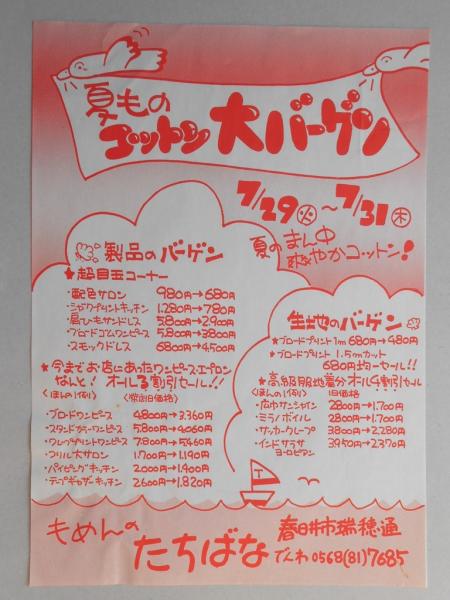 夏もの
コットン大バーゲン
7/29㊋〜7/31㊍
夏のまん中
爽やかコットン!
製品のバーゲン
★超目玉コーナー
・配色サロン 980円→680円
・シャークプリントキッチン 1.280円→780円
・肩ひもサンドレス 5.800円→2.900円
・ワイドゴムワンピース 5.800円→3.800円
・スモックドレス 6.800円→4.500円
★今までお店にあったワンピース・エプロン
なんと! オール3割引セール!!
<ほんの1例>
・ブロードワンピース 4.800円→3.360円
・スタンドカラーワンピース 5.800円→4.060円
・クレーププリントワンピース 7.800円→5.460円
・フリル大サロン 1.700円→1.190円
・パイピングキッチン 2.000円→1.400円
・テープギャザーキッチン 2.600円→1.820円
生地のバーゲン
★ブロードプリント 1m 680円→480円
★ブロードプリント 1.5mカット
680円均一セール!!
★高級服地着分 オール4割引セール
<ほんの1例> 旧価格
・広巾サンシャイン 2.800円→1.700円
・ミラノボイル 2.800円→1.700円
・サッカークレープ 3.800円→2.280円
・インドサラサ 3.950円→2.370円
ヨーロピアン
もめんの
たちばな
春日井市瑞穂通
でんわ 0568(81)7685